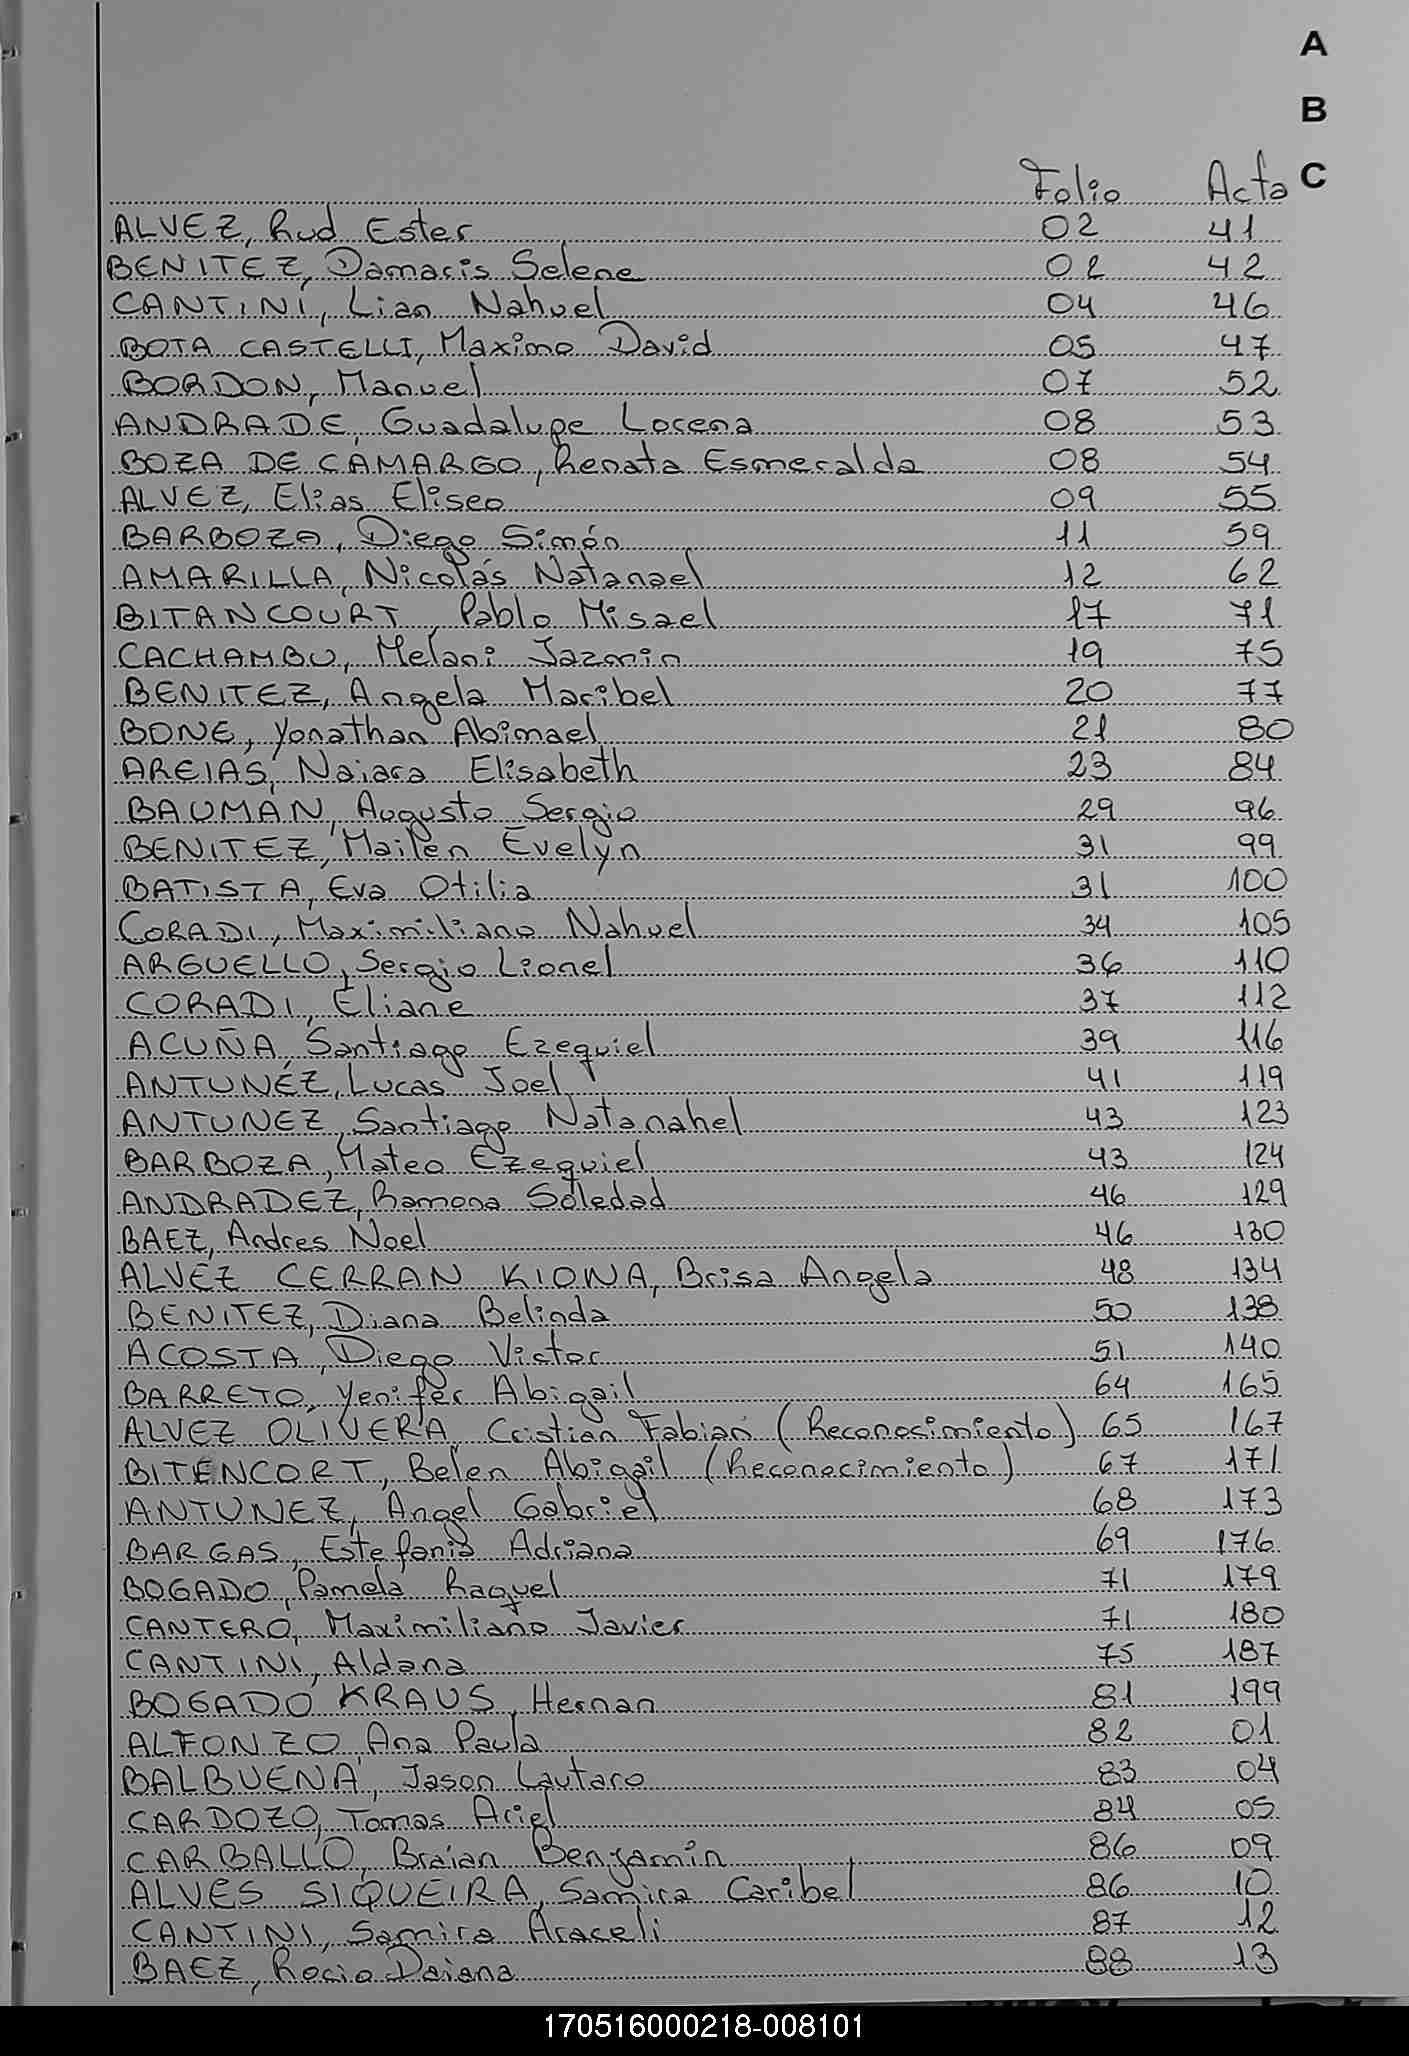 A
B
C
Folio Acta
ALVEZ, Rud Ester 02 41
BENITEZ, Damaris Selene 02 42
CANTINI, Lian Nahuel 04 46
BOTA CASTELLI, Maximo David 05 47
BORDON, Manuel 07 52
ANDRADE, Guadalupe Lorena 08 53
BOZA DE CAMARGO, Renata Esmeralda 08 54
ALVEZ, Elias Eliseo 09 55
BARBOZA, Diego Simón 11 59
AMARILLA, Nicolás Natanael 12 62
BITANCOURT, Pablo Misael 17 71
CACHAMBU, Melani Jazmin 19 75
BENITEZ, Angela Maribel 20 77
BONE, Yonathan Abimael 21 80
AREIAS, Naiara Elisabeth 23 84
BAUMAN, Augusto Sergio 29 96
BENITEZ, Mailen Evelyn 31 99
BATISTA, Eva Otilia 31 100
CORADI, Maximiliano Nahuel 34 105
ARGUELLO, Sergio Lionel 36 110
CORADI, Eliane 37 112
ACUÑA, Santiago Ezequiel 39 116
ANTUNEZ, Lucas Joel 41 119
ANTUNEZ, Santiago Natanahel 43 123
BARBOZA, Mateo Ezequiel 43 124
ANDRADEZ, Ramona Soledad 46 129
BAEZ, Andres Noel 46 130
ALVEZ CERRAN KIONA, Brisa Angela 48 134
BENITEZ, Diana Belinda 50 138
ACOSTA, Diego Victor 51 140
BARRETO, Yenifer Abigail 64 165
ALVEZ OLIVERA, Cristian Fabian (Reconocimiento) 65 167
BITENCORT, Belen Abigail (Reconocimiento) 67 171
ANTUNEZ, Angel Gabriel 68 173
BARGAS, Estefania Adriana 69 176
BOGADO, Pamela Raquel 71 179
CANTERO, Maximiliano Javier 71 180
CANTINI, Aldana 75 187
BOGADO KRAUS, Hernan 81 199
ALFONZO, Ana Paula 82 01
BALBUENA, Jason Lautaro 83 04
CARDOZO, Tomas Ariel 84 05
CARBALLO, Braian Benjamin 86 09
ALVES SIQUEIRA, Samira Caribel 86 10
CANTINI, Samira Araceli 87 12
BAEZ, Rocio Daiana 88 13
170516000218-008101